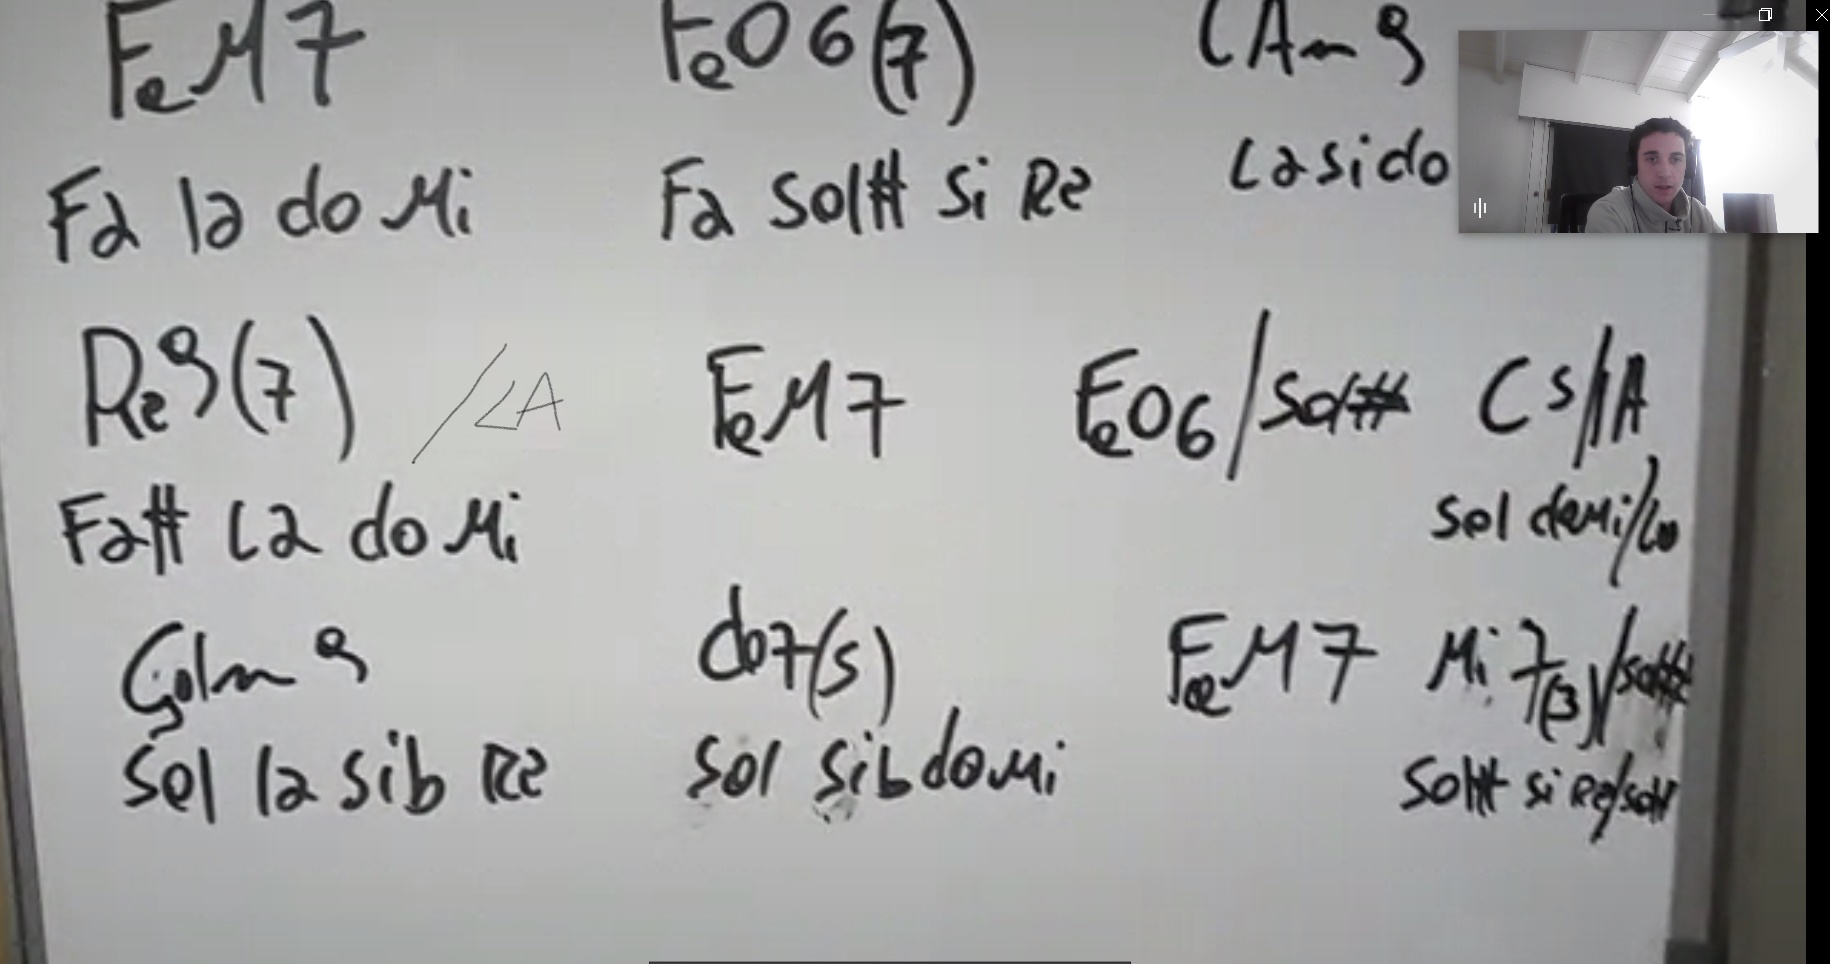 FeM7 FeO6(7) LAm9
Fa la do Mi Fa Sol# Si Re La si do
Re9(7) /LA FeM7 FeO6/Sol# C5/LA
Fa# La do Mi Sol do Mi/La
Solm9 do7(5) FeM7 Mi7(3)/Sol#
Sol la sib Re Sol sib do Mi Sol# si Re/Sol#